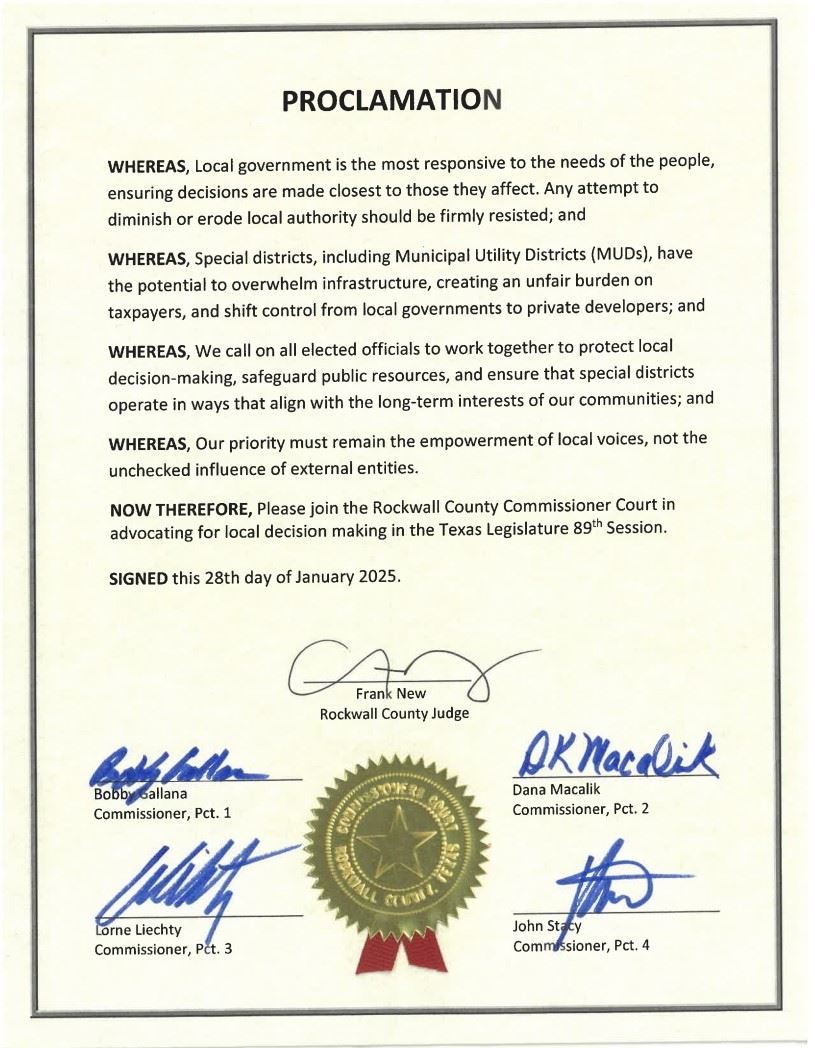 PROCLAMATION
WHEREAS, Local government is the most responsive to the needs of the people,
ensuring decisions are made closest to those they affect. Any attempt to
diminish or erode local authority should be firmly resisted; and
WHEREAS, Special districts, including Municipal Utility Districts (MUDs), have
the potential to overwhelm infrastructure, creating an unfair burden on
taxpayers, and shift control from local governments to private developers; and
WHEREAS, We call on all elected officials to work together to protect local
decision-making, safeguard public resources, and ensure that special districts
operate in ways that align with the long-term interests of our communities; and
WHEREAS, Our priority must remain the empowerment of local voices, not the
unchecked influence of external entities.
NOW THEREFORE, Please join the Rockwall County Commissioner Court in
advocating for local decision making in the Texas Legislature 89th Session.
SIGNED this 28th day of January 2025.
Frank New
Rockwall County Judge
Bobby Gallana
Bobby Gallana
Commissioner, Pct. 1
DK Macalik
Dana Macalik
Commissioner, Pct. 2
COMMISSIONERS COURT
ROCKWALL COUNTY, TEXAS
Lorne Liechty
Commissioner, Pct. 3
John Stacy
Commissioner, Pct. 4